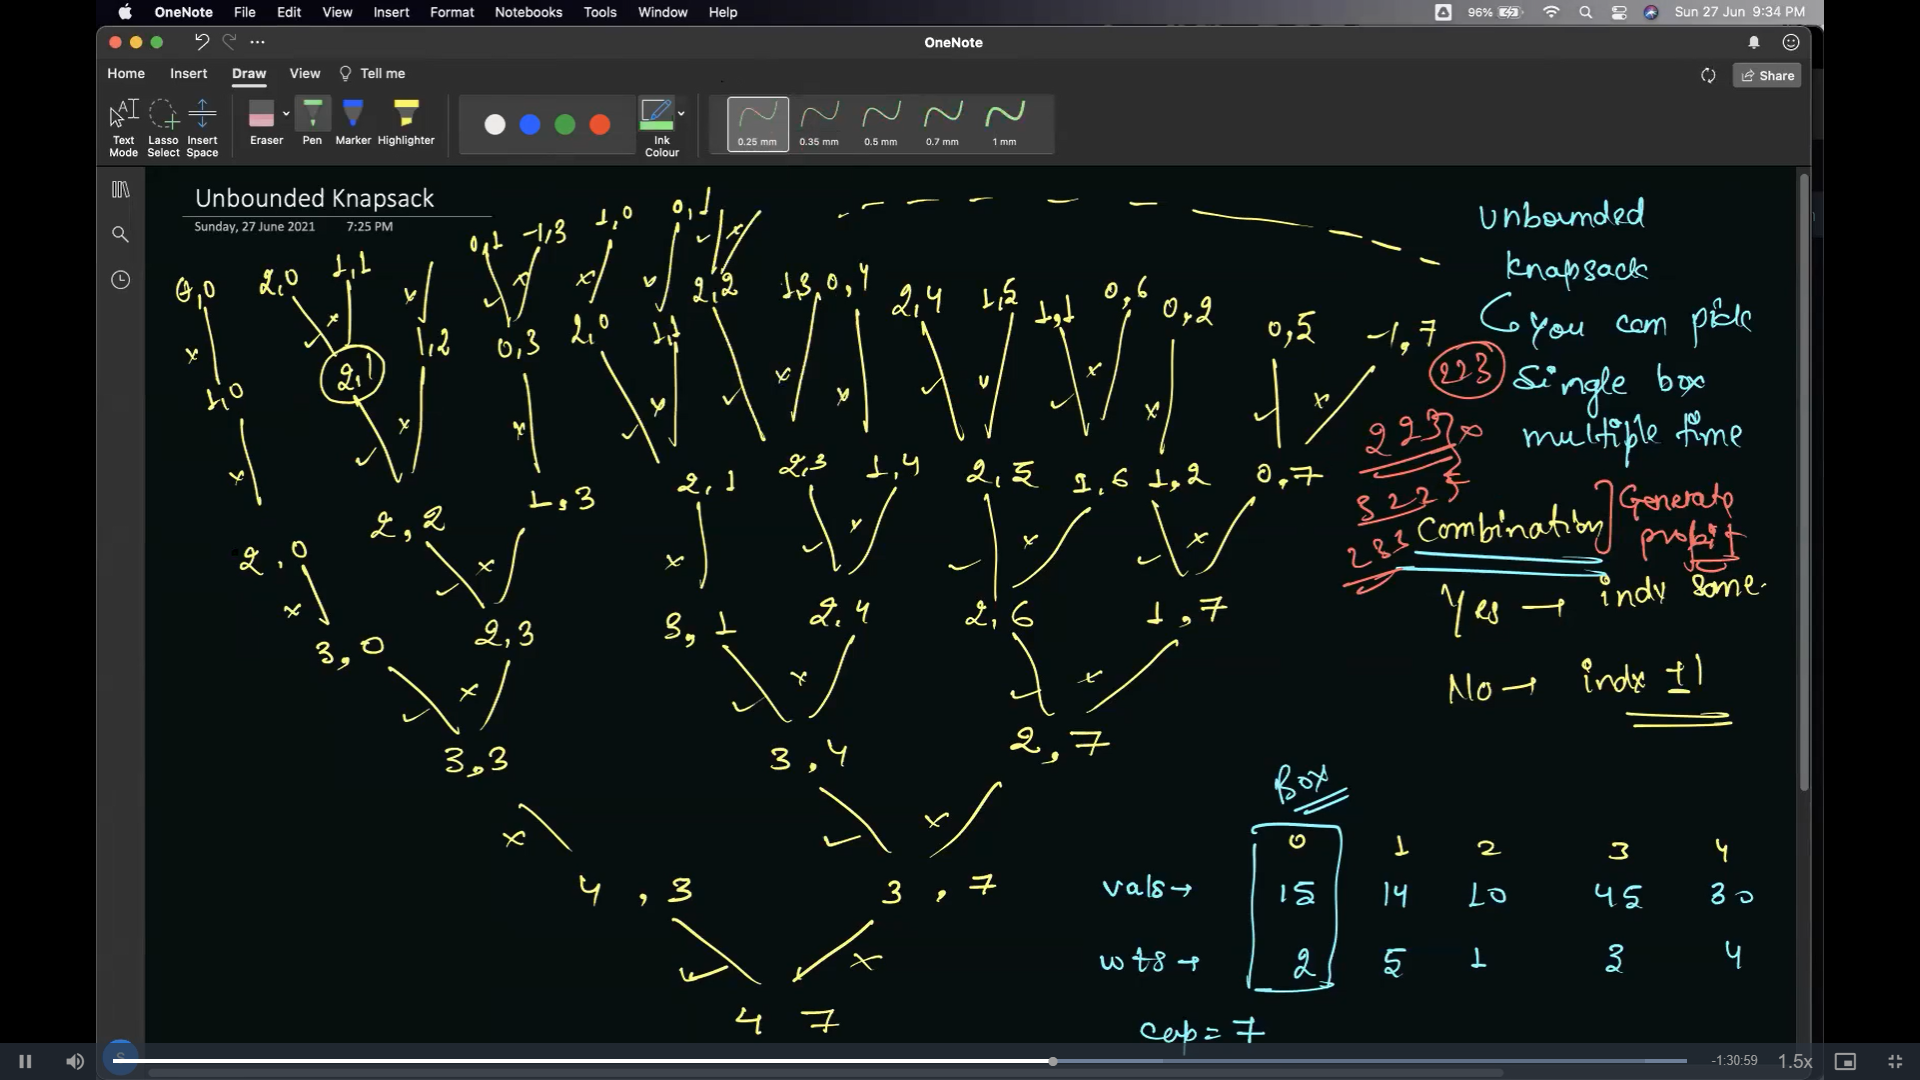 OneNote File Edit View Insert Format Notebooks Tools Window Help 96% Sun 27 Jun 9:34 PM
OneNote
Home Insert Draw View Tell me Share
Text Mode
Lasso Select
Insert Space
Eraser
Pen
Marker
Highlighter
Ink Colour
0.25 mm 0.35 mm 0.5 mm 0.7 mm 1 mm
Unbounded Knapsack
Sunday, 27 June 2021 7:25 PM
0,1 -1,3 1,0 0,1
2,0 1,1
2,2 1,3 0,4 2,4 1,5 1,1 0,6 0,2 0,5 -1,7
2,1 1,2 0,3 2,0 1,1
1,0
2,2 1,3 2,1 2,3 1,4 2,5 1,6 1,2 0,7
2,0 2,3 3,1 2,4 2,6 1,7
3,0
3,3 3,4 2,7
4,3 3,7
4 7
unbounded
knapsack
you can pick
single box
multiple time
223
223
322
Combination
Generate
profit
Yes → indx same.
No → indx ±1
Box
0 1 2 3 4
vals → 15 14 10 45 30
wts → 2 5 1 3 4
cap = 7
-1:30:59 1.5x